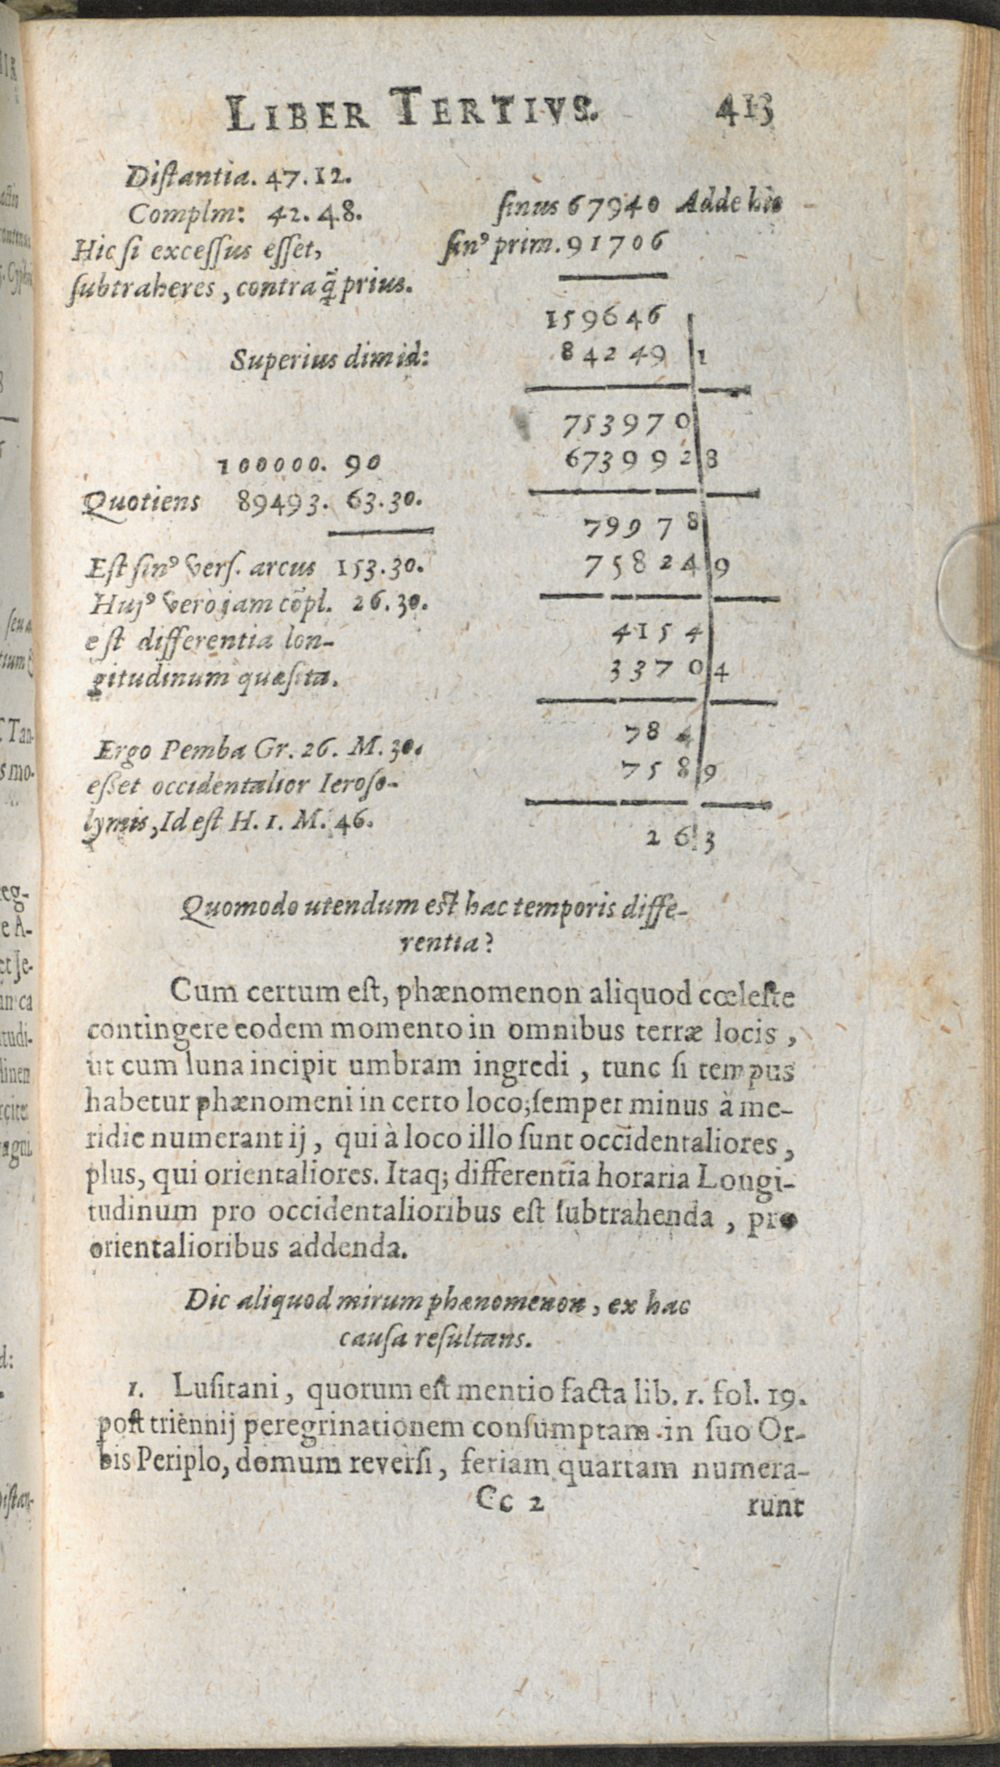 LIBER TERTIVS. 413
Diſtantia. 47.12.
Complm: 42.48. ſinus 67940 Adde hîc
Hic ſi exceſſus eſſet, ſinꝰ prim. 91706
ſubtraheres, contra q̃ prius.
159646
Superius dimid: 84249 | 1
753970
100000. 90 673992 | 8
Quotiens 89493. 63.30.
79978
Eſt ſinꝰ verſ. arcus 153.30. 75824 | 9
Hujꝰ verò jam cõpl. 26.30.
eſt differentia lon- 4154
gitudinum quæſita. 3370 | 4
Ergo Pemba Gr. 26. M. 30. 784
eßet occidentalior Ieroſo- 758 | 9
lymis, Id eſt H. 1. M. 46. 26 | 3
Quomodo utendum eſt hac temporis diffe-
rentia?
Cum certum eſt, phænomenon aliquod cœleſte
contingere eodem momento in omnibus terræ locis,
ut cum luna incipit umbram ingredi, tunc ſi tempus
habetur phænomeni in certo loco; ſemper minus à me-
ridie numerant ij, qui à loco illo ſunt occidentaliores,
plus, qui orientaliores. Itaq; differentia horaria Longi-
tudinum pro occidentalioribus eſt ſubtrahenda, pro
orientalioribus addenda.
Dic aliquod mirum phænomenon, ex hac
cauſa reſultans.
1. Luſitani, quorum eſt mentio facta lib. 1. fol. 19.
poſt triennij peregrinationem conſumptam in ſuo Or-
bis Periplo, domum reverſi, feriam quartam numera-
Cc 2 runt